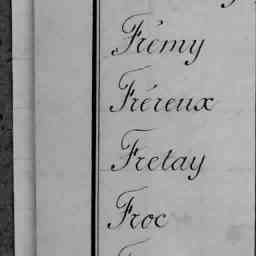 Frémy
Fréreux
Fretay
Froc